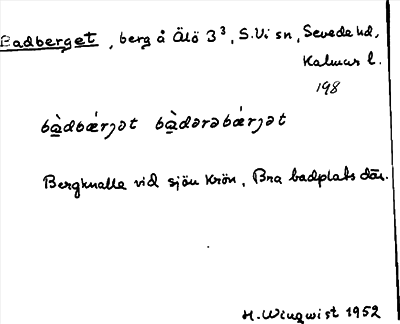 Badberget, berg å Älö 3³, S.Vi sn, Sevede hd,
Kalmar l.
198
bàdbærjət bàdərəbærjət
Bergknalle vid sjön Krön. Bra badplats där.
H. Wingwist 1952